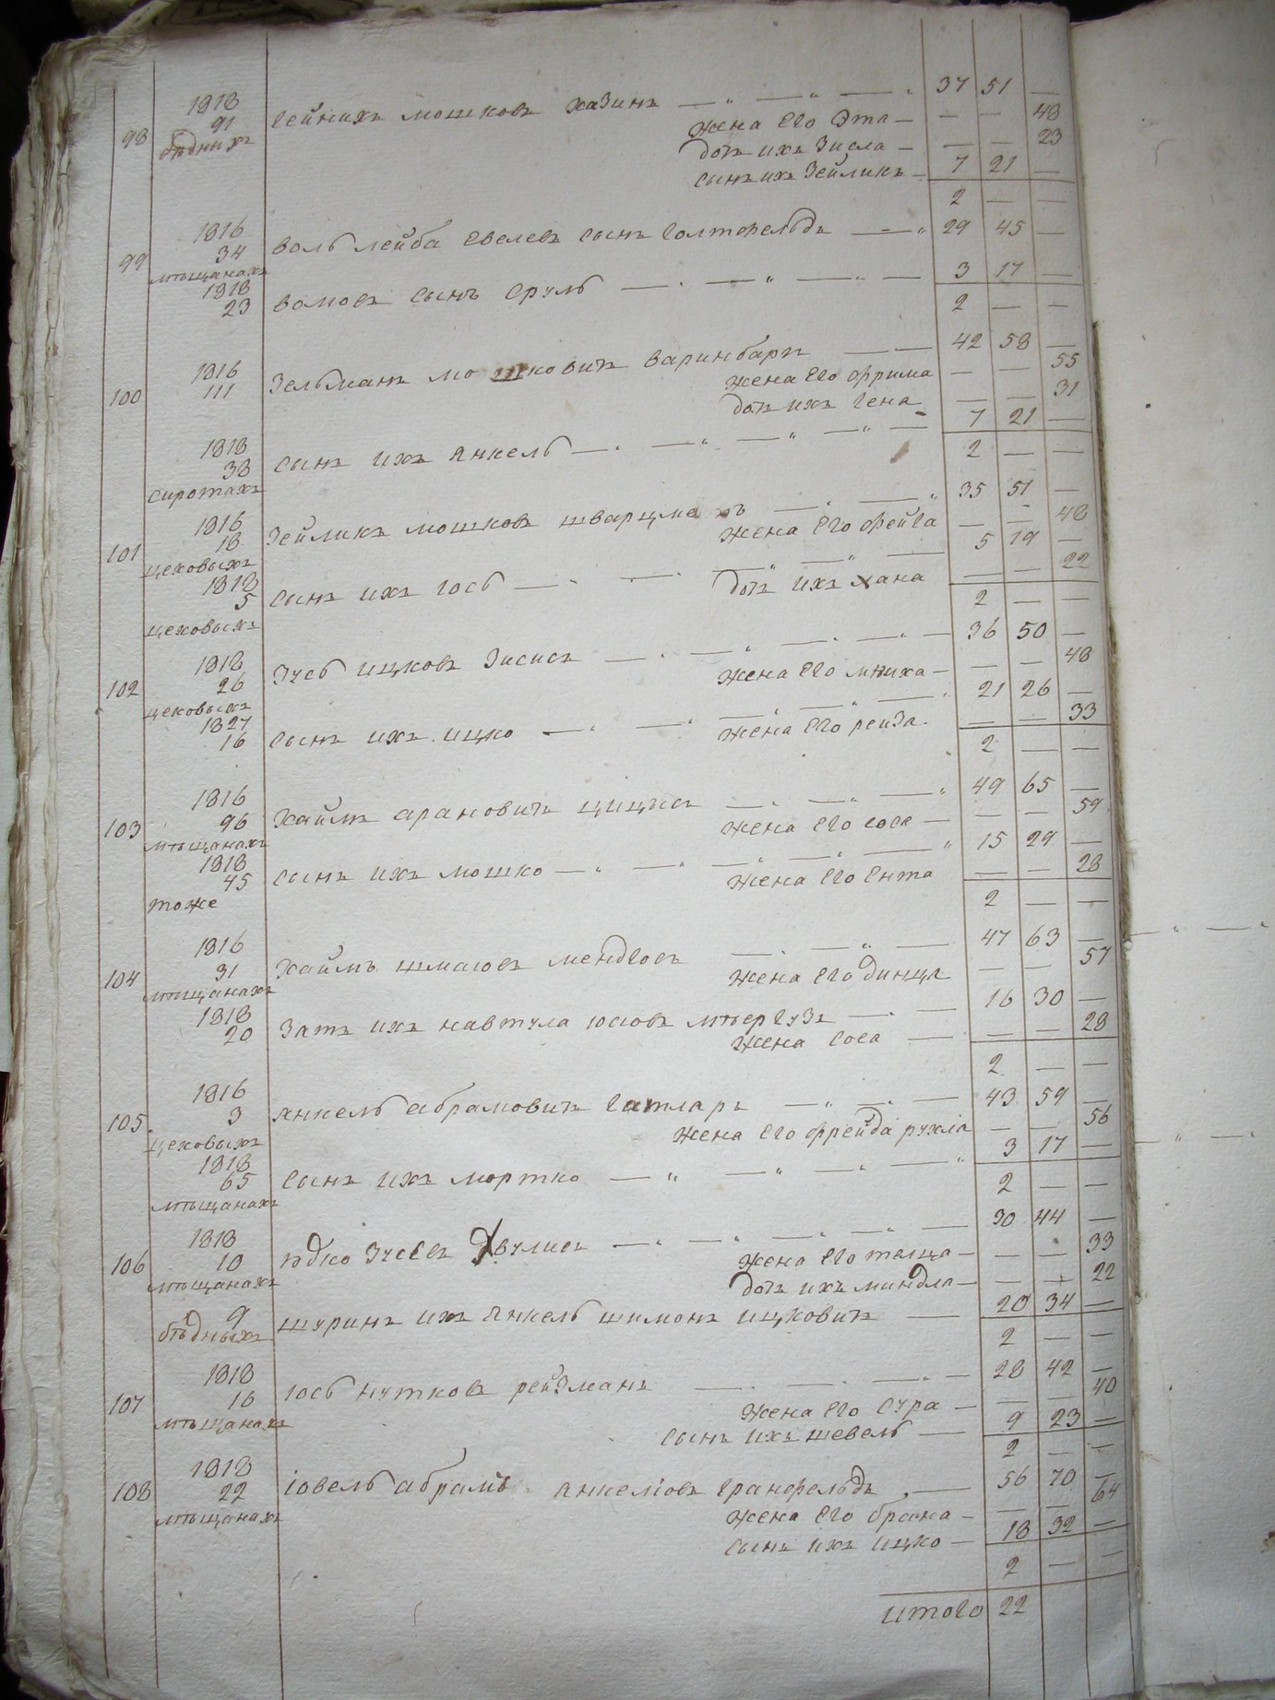 98 1818 91 бѣдныхъ Гейнихъ Мошковъ Хазинъ 37 51 —
жена его Эта — — 48
дочь ихъ Зисла — — 23
сынъ ихъ Зейликъ 7 21 —
2 — —
99 1816 34 мѣщанахъ Воль Лейба Евелевъ сынъ Голтфельдъ 29 45 —
1818 23 Вомовъ сынъ Сруль 3 17 —
2 — —
100 1816 111 Зельманъ Мошковичъ Варинбаръ 42 58 —
жена его Фрима — — 55
дочь ихъ Гена — — 31
1818 38 сиротахъ сынъ ихъ Янкель 7 21 —
2 — —
101 1816 18 цеховыхъ Зейликъ Мошковъ Шварцма нъ 35 51 —
жена его Фейга — — 48
1818 5 цеховыхъ сынъ ихъ Іось 5 19 —
дочь ихъ Хана — — 22
2 — —
102 1818 26 цеховыхъ Зусь Ицковъ Зисисъ 36 50 —
жена его Мниха — — 48
1827 16 сынъ ихъ Ицко 21 26 —
жена его Рейза — — 33
2 — —
103 1816 96 мѣщанахъ Хаимъ Арановичъ Цицисъ 49 65 —
жена его Соса — — 59
1818 45 тоже сынъ ихъ Мошко 15 29 —
жена его Ента — — 28
2 — —
104 1816 31 мѣщанахъ Хаимъ Шмаіовъ Менделевъ 47 63 —
жена его Динця — — 57
1818 20 зять ихъ Навтула Іосіовъ Мѣергузъ 16 30 —
жена Соса — — 28
2 — —
105 1816 3 цеховыхъ Янкель Абрамовичъ Гатларъ 43 59 —
жена его Фрейда Рухля — — 56
1818 65 мѣщанахъ сынъ ихъ Мортко 3 17 —
2 — —
106 1818 10 мѣщанахъ Юдко Зусевъ Хвулисъ 30 44 —
жена его Темца — — 33
дочь ихъ Миндла — — 22
9 бѣдныхъ шуринъ ихъ Янкель Шимонъ Ицковичъ 20 34 —
2 — —
107 1818 16 мѣщанахъ Іось Нутковъ Рейзманъ 28 42 —
жена его Сура — — 40
сынъ ихъ Шевель 9 23 —
2 — —
108 1818 22 мѣщанахъ Іовель Абрамъ Янкеліовъ Гранфельдъ 56 70 —
жена его Брана — — 64
сынъ ихъ Ицко 18 32 —
2 — —
Итого 22